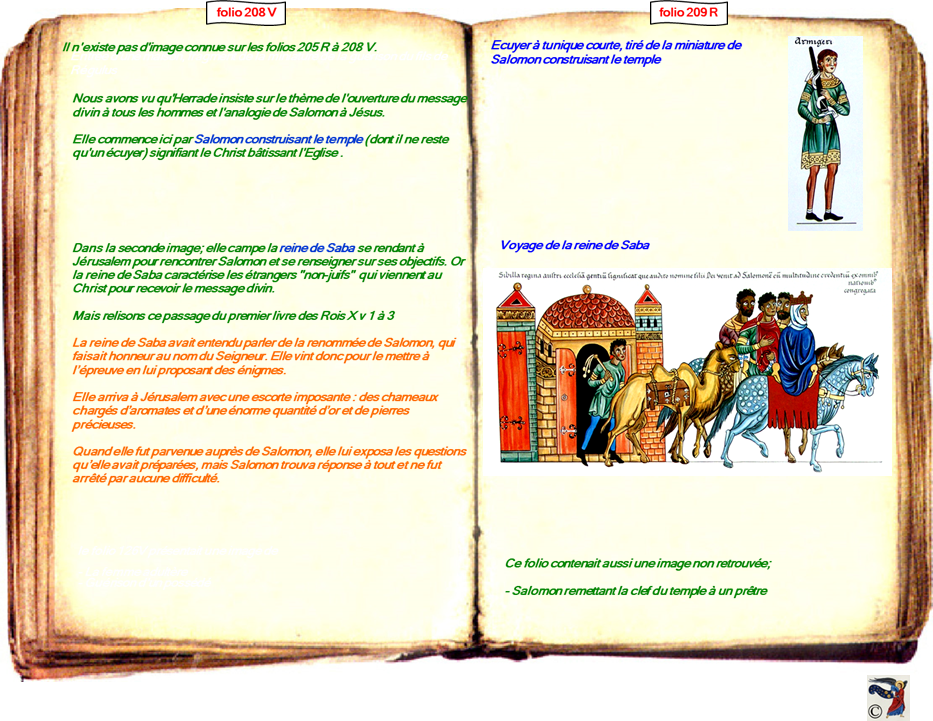 folio 208 V
Il n'existe pas d'image connue sur les folios 205 R à 208 V.
Nous avons vu qu'Herrade insiste sur le thème de l'ouverture du message
divin à tous les hommes et l'analogie de Salomon à Jésus.
Elle commence ici par Salomon construisant le temple (dont il ne reste
qu'un écuyer) signifiant le Christ bâtissant l'Eglise .
Dans la seconde image; elle campe la reine de Saba se rendant à
Jérusalem pour rencontrer Salomon et se renseigner sur ses objectifs. Or
la reine de Saba caractérise les étrangers "non-juifs" qui viennent au
Christ pour recevoir le message divin.
Mais relisons ce passage du premier livre des Rois X v 1 à 3
La reine de Saba avait entendu parler de la renommée de Salomon, qui
faisait honneur au nom du Seigneur. Elle vint donc pour le mettre à
l'épreuve en lui proposant des énigmes.
Elle arriva à Jérusalem avec une escorte imposante : des chameaux
chargés d'aromates et d'une énorme quantité d'or et de pierres
précieuses.
Quand elle fut parvenue auprès de Salomon, elle lui exposa les questions
qu'elle avait préparées, mais Salomon trouva réponse à tout et ne fut
arrêté par aucune difficulté.
folio 209 R
Ecuyer à tunique courte, tiré de la miniature de
Salomon construisant le temple
Armigeri
Voyage de la reine de Saba
Sibilla regina austri ecclesiā gentiū significat que audito nomine filii Dei venit ad Salomonē cū multitudine credentiū ex omnib'
nationib'
congregata
Ce folio contenait aussi une image non retrouvée;
- Salomon remettant la clef du temple à un prêtre
©